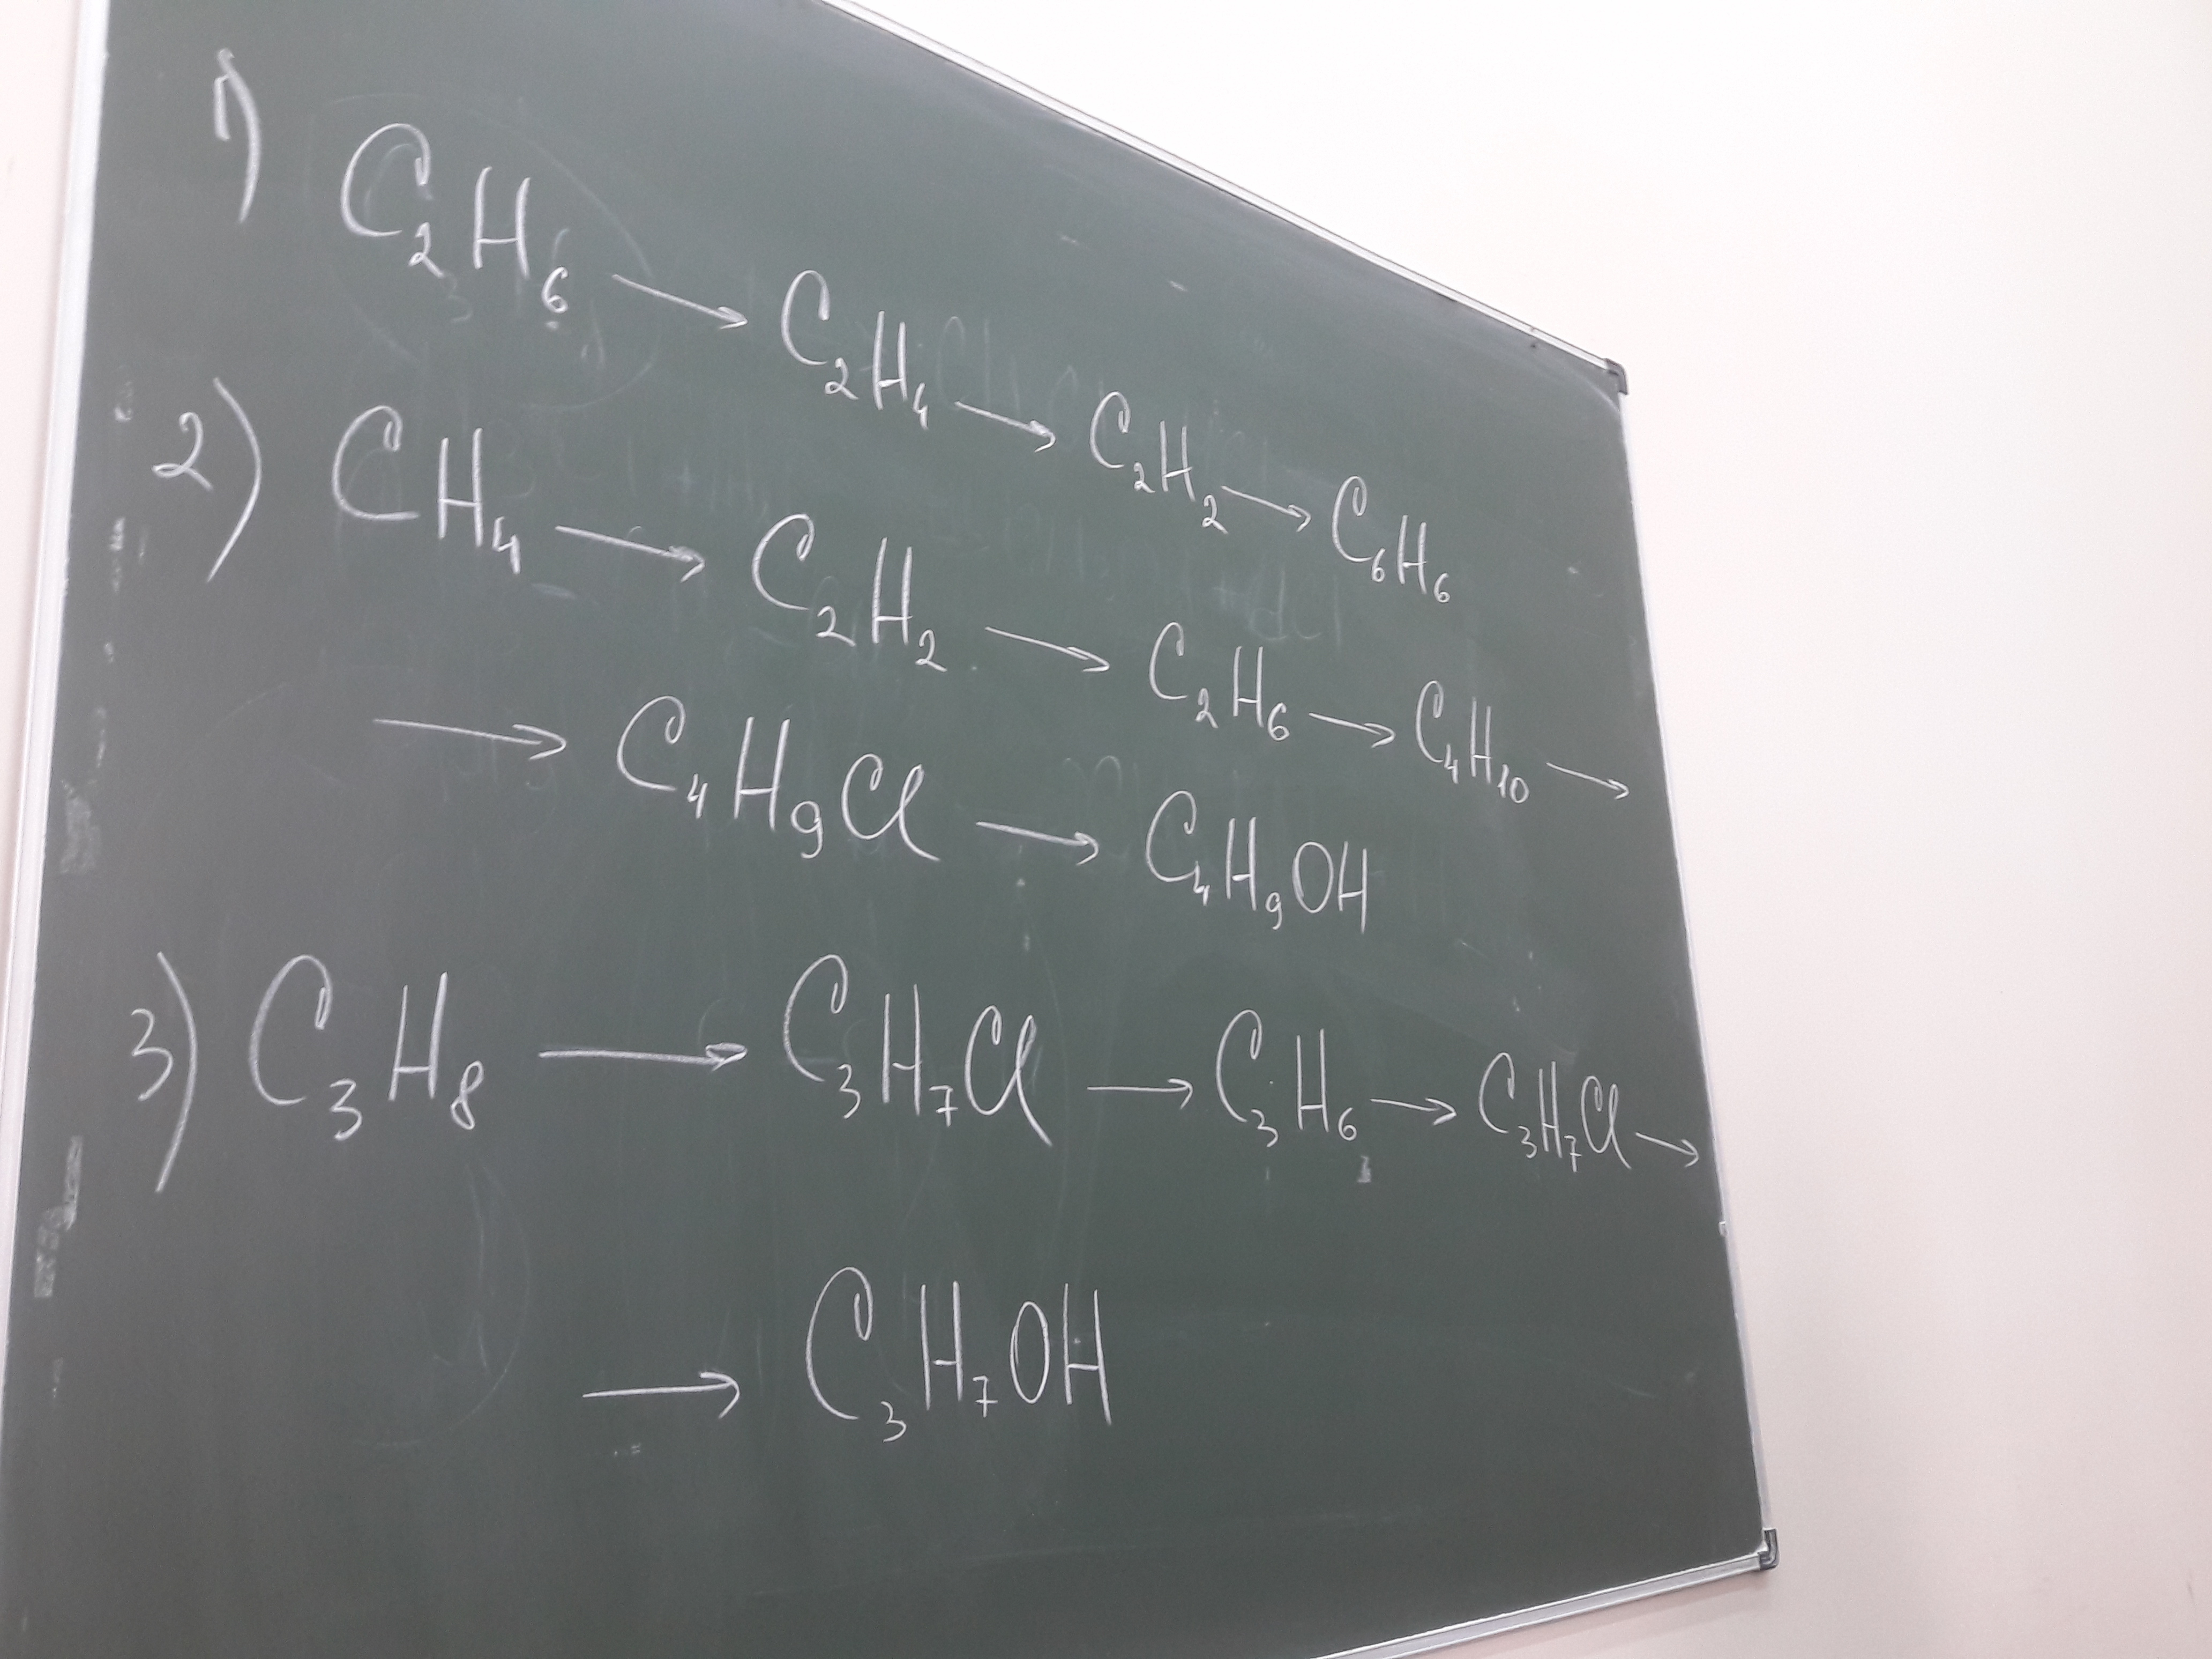 1) C₂H₆ → C₂H₄ → C₂H₂ → C₆H₆
2) CH₄ → C₂H₂ → C₂H₆ → C₄H₁₀ →
→ C₄H₉Cl → C₄H₉OH
3) C₃H₈ → C₃H₇Cl → C₃H₆ → C₃H₇Cl →
→ C₃H₇OH